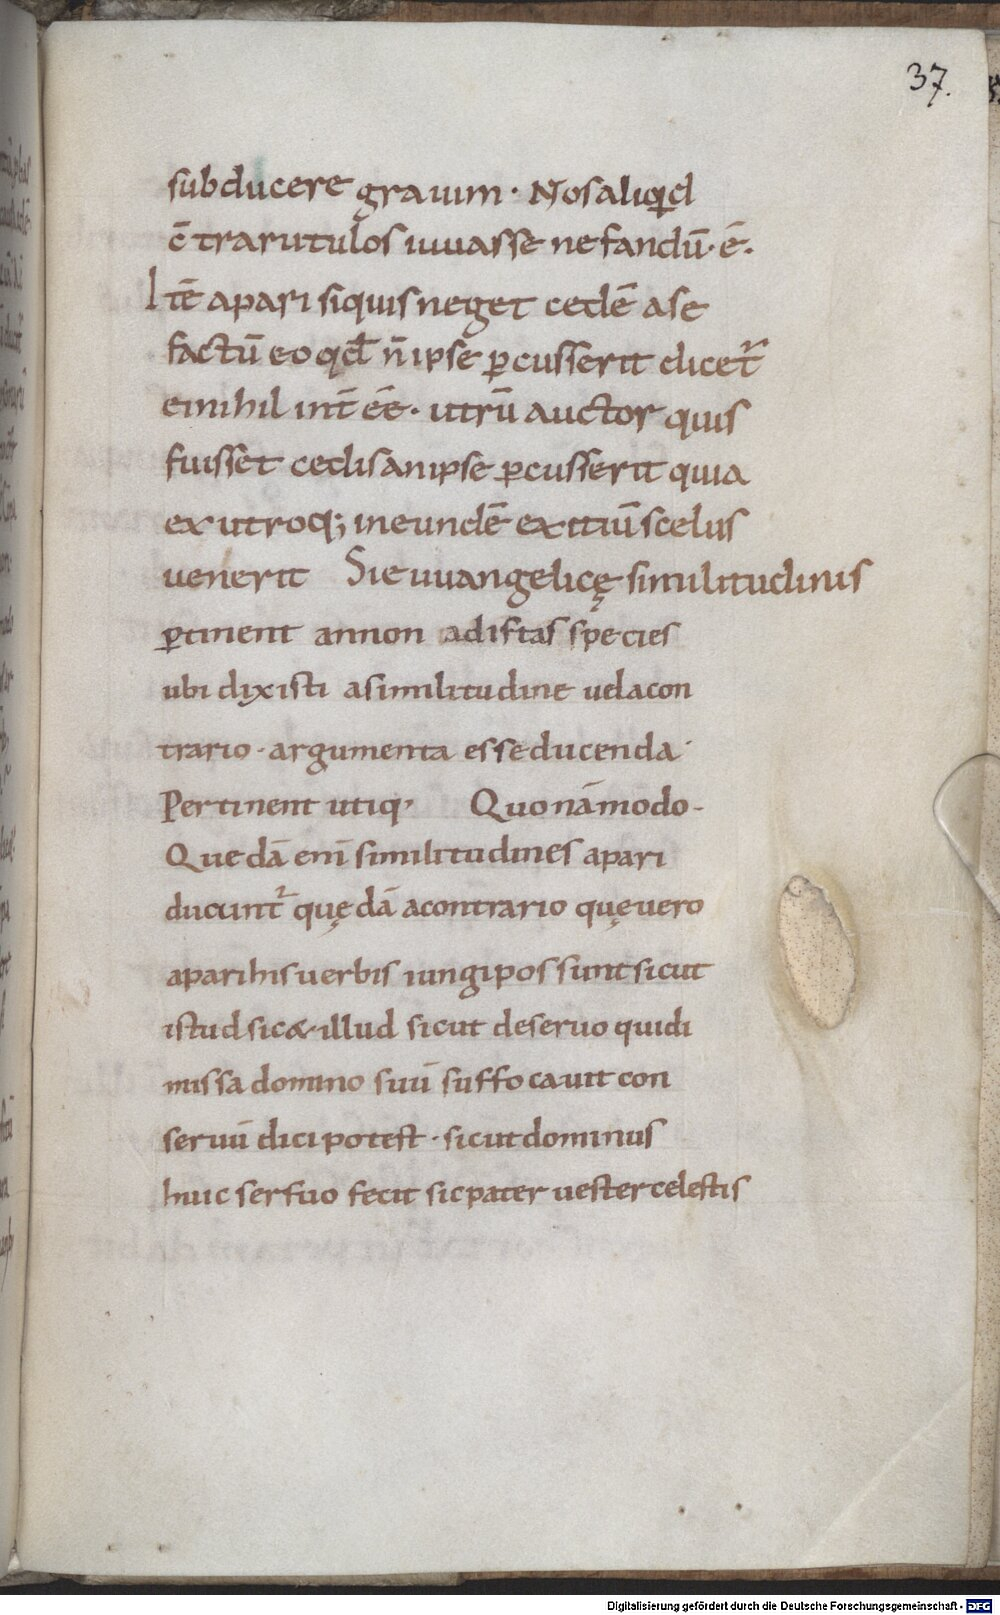 37.
subducere graium · Nos aliquid
c̄ tra rutulos iuuasse nefandū · ē.
Itē a pari siquis neget cedē a se
factū eo qđ n̄ ipse ꝑcusserit dicet᷑
ei nihil int̄ ēē · utrū auctor quis
fuisset cedis an ipse ꝑcusserit quia
ex utroq; in eundē exitiū scelus
uenerit Si euuangelicę similitudinis
ꝑtinent annon ad istas species
ubi dixisti a similitudine uel a con
trario · argumenta esse ducenda ·
Pertinent utiq· Quonā modo -
Quedā enī similitudines a pari
ducunt᷑ quędā a contrario quę uero
a pari his uerbis iungi possunt sicut
istud sic & illud sicut de seruo qui di
missa domino suū suffocauit con
seruū dici potest · sicut dominus
huic serfuo fecit sic pater uester celestis
Digitalisierung gefördert durch die Deutsche Forschungsgemeinschaft - DFG